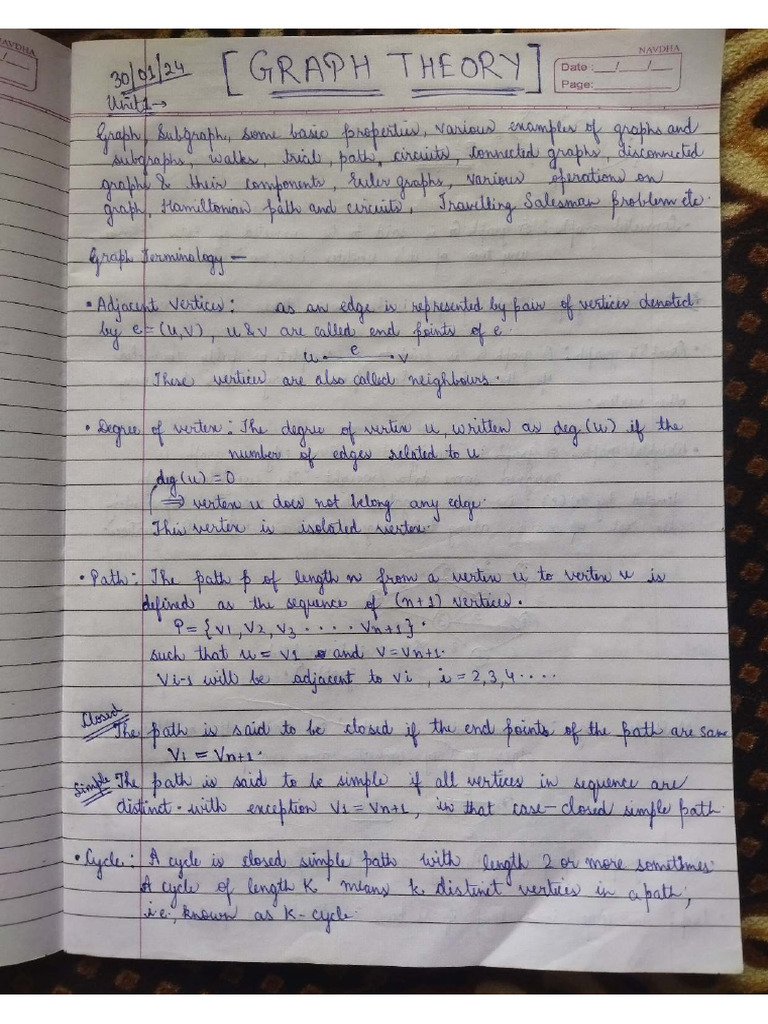 NAVDHA
30/01/24
[GRAPH THEORY]
NAVDHA
Date: __/__/__
Page:
Unit 1 →
Graph, Subgraph, some basic properties, various examples of graphs and
subgraphs, walks, trial, path, circuits, connected graphs, disconnected
graphs & their components, Euler graphs, various operations on
graph, Hamiltonian path and circuits, Travelling Salesman problem etc.
Graph Terminology —
• Adjacent Vertices: as an edge is represented by pair of vertices denoted
by e = (u,v), u & v are called end points of e.
u e v
These vertices are also called neighbours.
• Degree of vertex: The degree of vertex u, written as deg(u) if the
number of edges related to u.
deg(u) = 0
⇒ vertex u does not belong any edge.
This vertex is isolated vertex.
• Path: The path p of length n from a vertex u to vertex v is
defined as the sequence of (n+1) vertices.
P = {v1, v2, v3 ..... vn+1}.
such that u = v1 and v = vn+1.
vi-1 will be adjacent to vi, i = 2,3,4 ....
Closed
The path is said to be closed if the end points of the path are same
v1 = vn+1.
Simple The path is said to be simple if all vertices in sequence are
distinct with exception v1 = vn+1, in that case - closed simple path
• Cycle: A cycle is closed simple path with length 2 or more sometimes.
A cycle of length K means k distinct vertices in a path,
i.e., known as K-cycle.